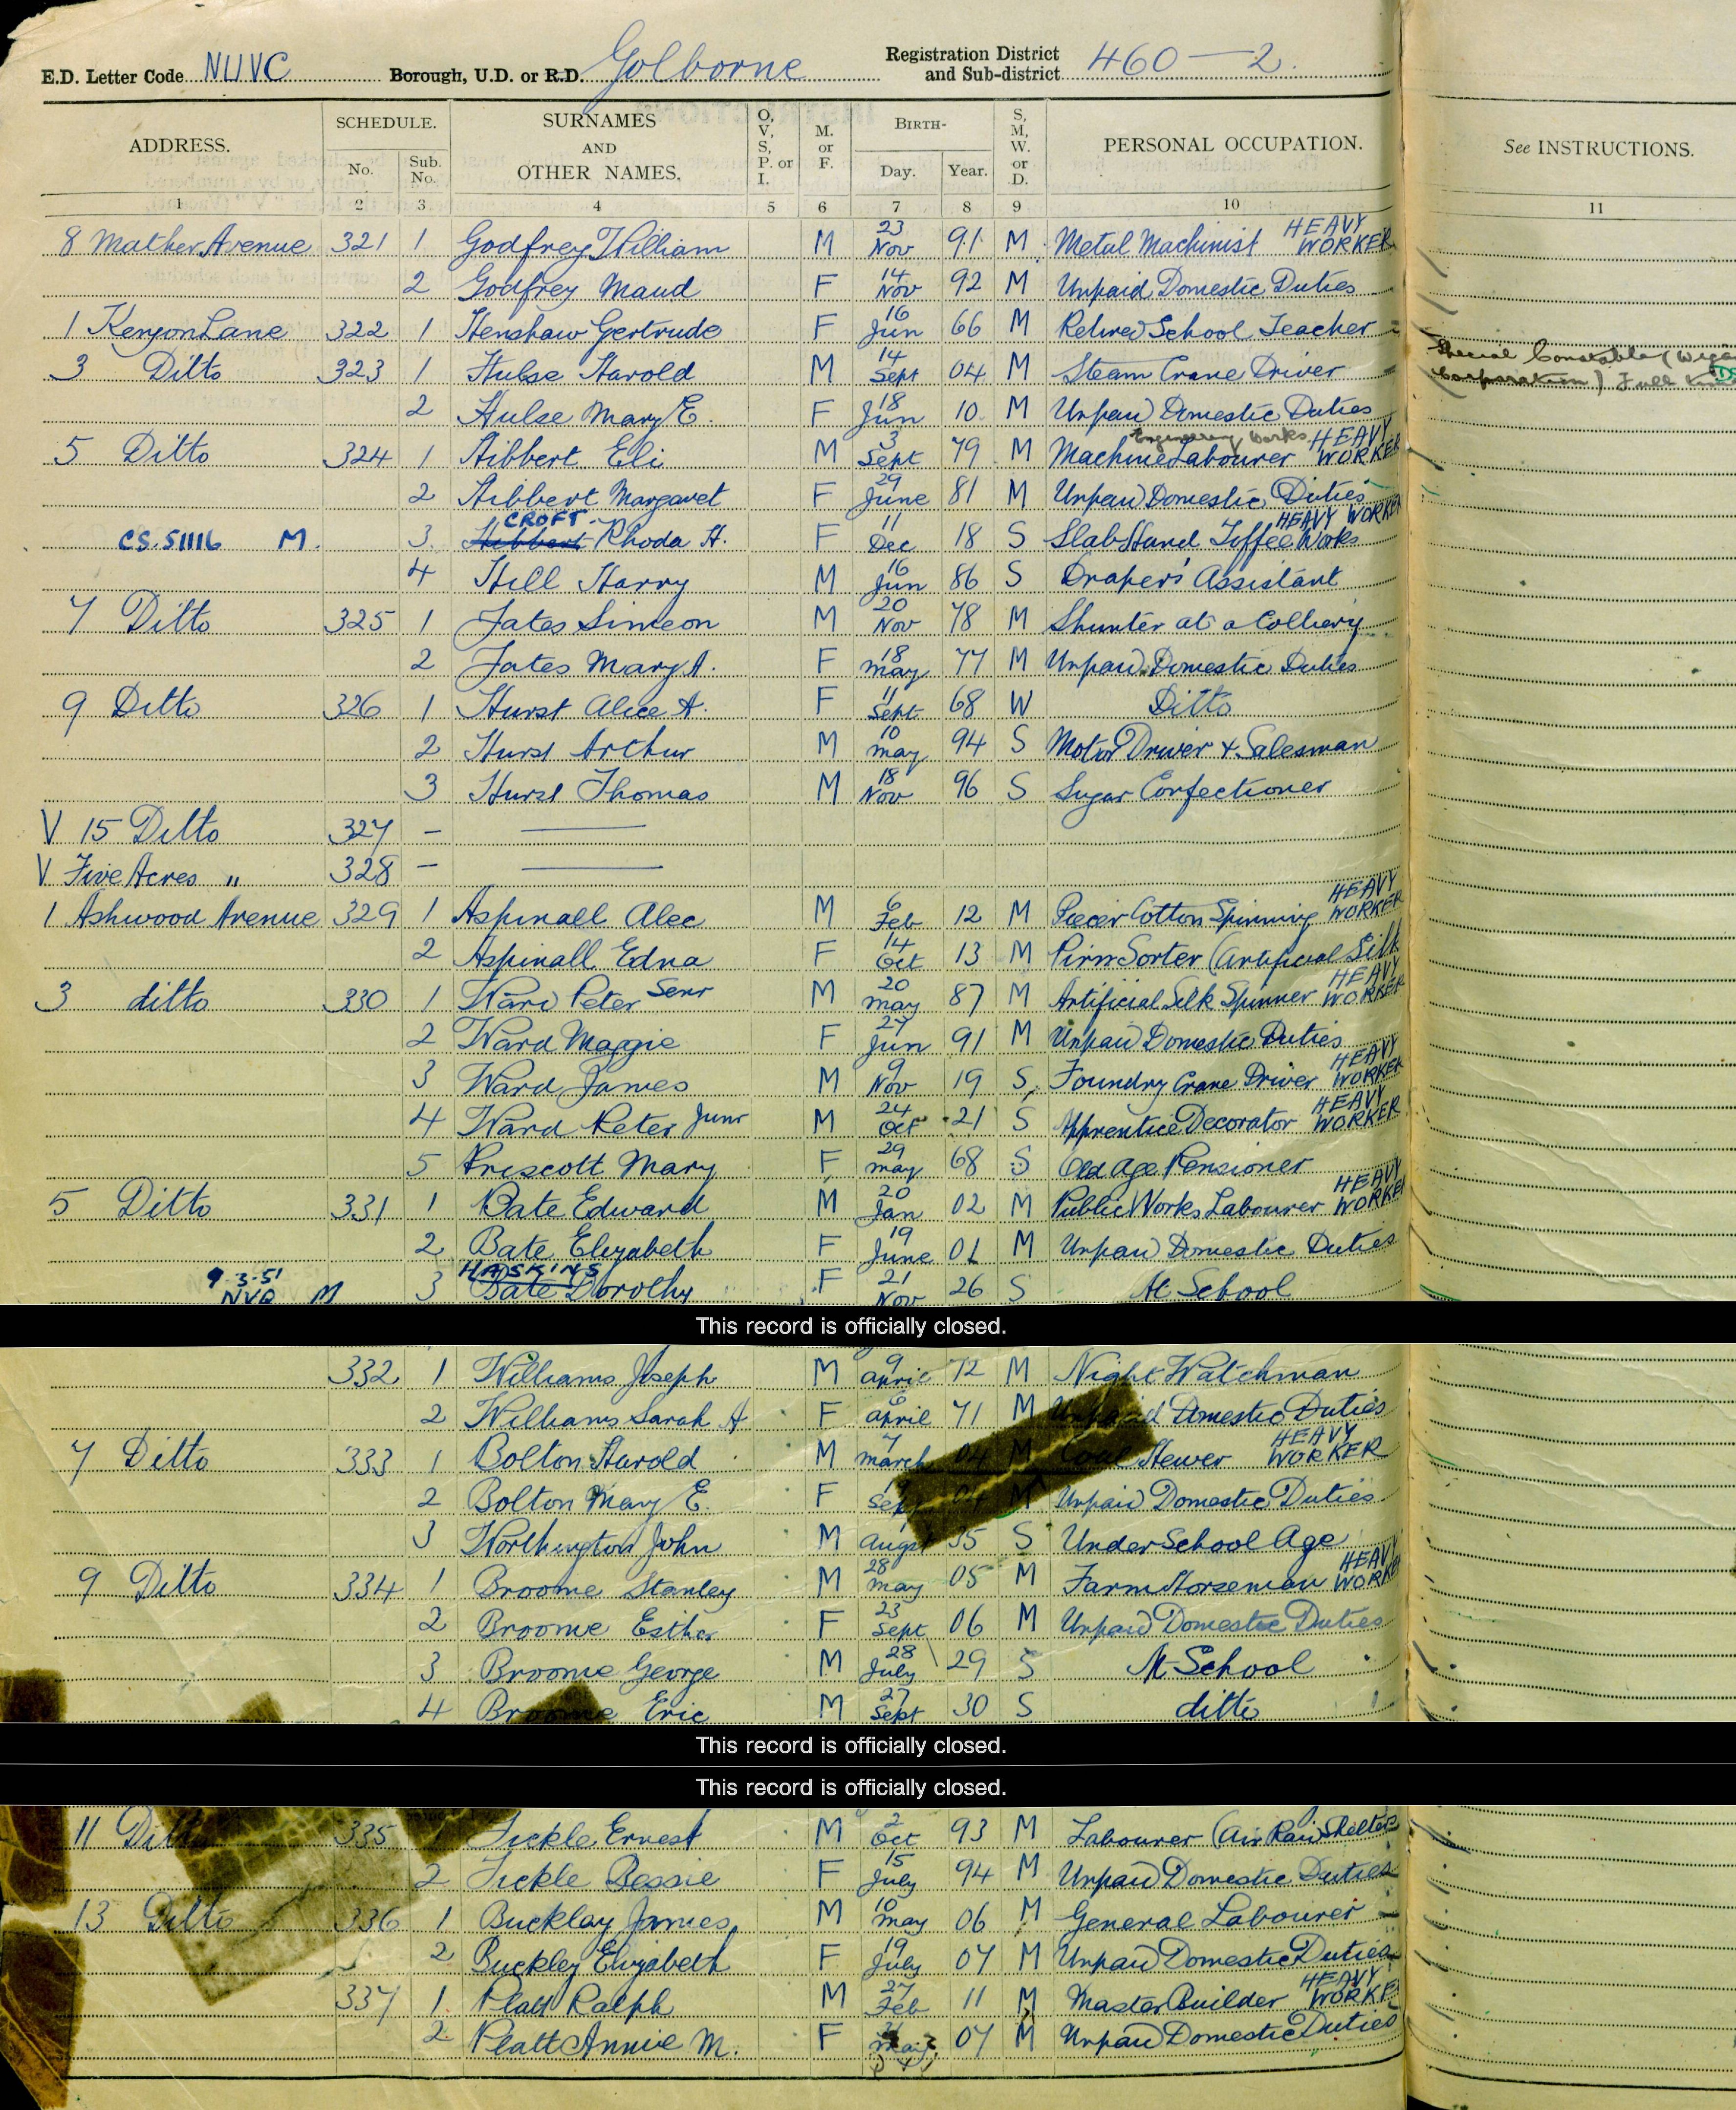 E.D. Letter Code NUVC Borough, U.D. or R.D. Golborne Registration District and Sub-district 460 — 2.
ADDRESS. SCHEDULE. No. Sub. No. SURNAMES AND OTHER NAMES. O, V, S, P. or I. M. or F. BIRTH- Day. Year. S, M, W. or D. PERSONAL OCCUPATION. See INSTRUCTIONS.
1 2 3 4 5 6 7 8 9 10 11
8 Mather Avenue 321 1 Godfrey William M 23 Nov 91 M Metal Machinist HEAVY WORKER
2 Godfrey Maud F 14 Nov 92 M Unpaid Domestic Duties
1 Kenyon Lane 322 1 Henshaw Gertrude F 16 Jun 66 M Retired School Teacher
3 Ditto 323 1 Hulse Harold M 14 Sept 04 M Steam Crane Driver Special Constable (Wigan Corporation) Full
2 Hulse Mary E. F 18 Jun 10 M Unpaid Domestic Duties
5 Ditto 324 1 Hibbert Eli M 3 Sept 79 M Machine Labourer Engineering Works HEAVY WORKER
2 Hibbert Margaret F 29 June 81 M Unpaid Domestic Duties
CS. 51116 M. 3 Hibbert CROFT. Rhoda H. F 11 Dec 18 S Slab Hand Toffee Works HEAVY WORKER
4 Hill Harry M 16 Jun 86 S Drapers' Assistant
7 Ditto 325 1 Yates Simeon M 20 Nov 78 M Shunter at a Colliery
2 Yates Mary A. F 18 May 77 M Unpaid Domestic Duties
9 Ditto 326 1 Hurst Alice A. F 11 Sept 68 W Ditto
2 Hurst Arthur M 10 May 94 S Motor Driver & Salesman
3 Hurst Thomas M 18 Nov 96 S Sugar Confectioner
V 15 Ditto 327 —
V Five Acres " 328 —
1 Ashwood Avenue 329 1 Aspinall Alec M 6 Feb 12 M Piecer Cotton Spinning HEAVY WORKER
2 Aspinall Edna F 14 Oct 13 M Pirn Sorter (Artificial Silk
3 ditto 330 1 Ward Peter Senr M 20 May 87 M Artificial Silk Spinner HEAVY WORKER
2 Ward Maggie F 27 Jun 91 M Unpaid Domestic Duties
3 Ward James M 9 Nov 19 S Foundry Crane Driver HEAVY WORKER
4 Ward Peter Junr M 24 Oct 21 S Apprentice Decorator HEAVY WORKER
5 Priscott Mary F 29 May 68 S Old Age Pensioner
5 Ditto 331 1 Bate Edward M 20 Jan 02 M Public Works Labourer HEAVY WORKER
2 Bate Elizabeth F 19 June 01 M Unpaid Domestic Duties
9-3-51 NVR M 3 Bate HASKINS Dorothy F 21 Nov 26 S At School
This record is officially closed.
332 1 Williams Joseph M 9 April 72 M Night Watchman
2 Williams Sarah A F 6 April 71 M Unpaid Domestic Duties
7 Ditto 333 1 Bolton Harold M 7 March 04 M Coal Hewer HEAVY WORKER
2 Bolton Mary E. F Sept M Unpaid Domestic Duties
3 Worthington John M Augst 35 S Under School Age
9 Ditto 334 1 Broome Stanley M 28 May 05 M Farm Horseman HEAVY WORKE
2 Broome Esther F 23 Sept 06 M Unpaid Domestic Duties
3 Broome George M 28 July 29 S At School
4 Broome Eric M 27 Sept 30 S ditto
This record is officially closed.
This record is officially closed.
11 Ditto 335 1 Tickle Ernest M 2 Oct 93 M Labourer (Air Raid Shelter
2 Tickle Bessie F 15 July 94 M Unpaid Domestic Duties
13 Ditto 336 1 Buckley James M 10 May 06 M General Labourer
2 Buckley Elizabeth F 19 July 07 M Unpaid Domestic Duties
337 1 Platt Ralph M 27 Feb 11 M Master Builder HEAVY WORKE
2 Platt Annie M. F 07 M Unpaid Domestic Duties